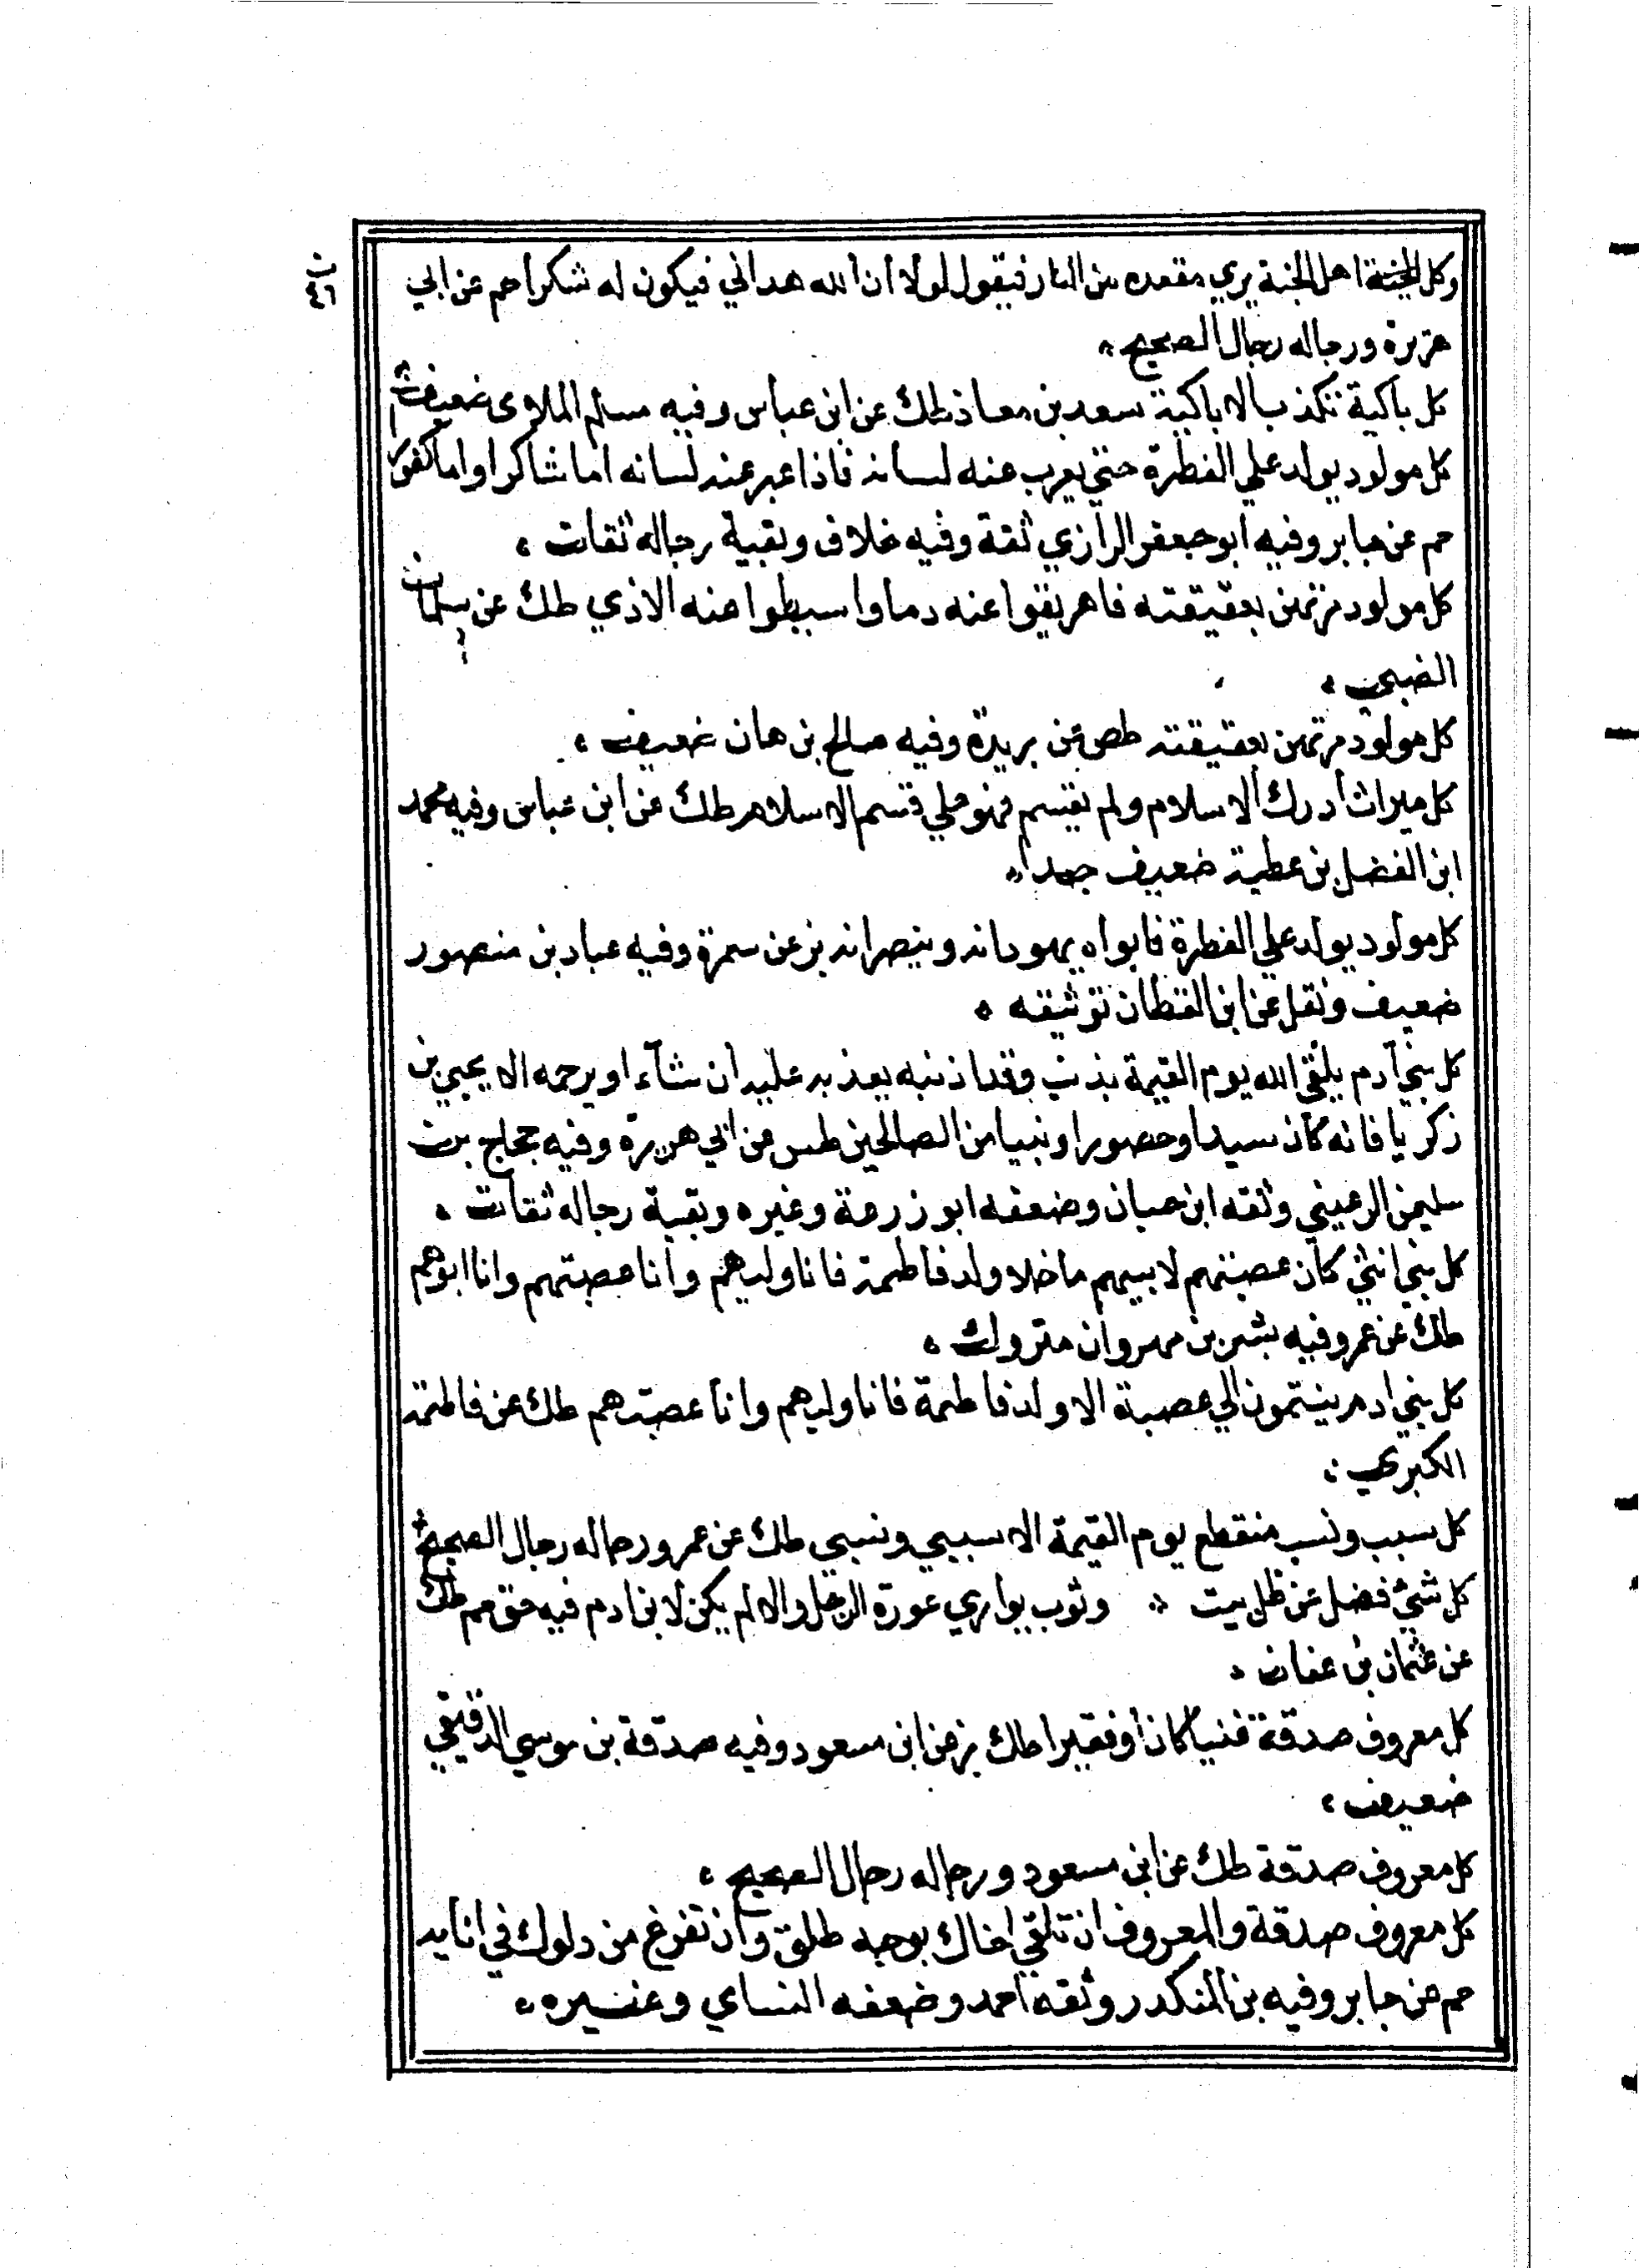 وكل الجنة اهل الجنة يري مقعده من النار فيقول لولا أن الله هداني فيكون له شكرا حم عن ابي
هريرة ورجاله رجال الصحيح
كل باكية تكذب الا باكية سعد بن معاذ طك عن ابن عباس وفيه مسلم الملاوى ضعيف
كل مولود يولد علي الفطرة حتي يعرب عنه لسانه فاذا عبر عنه لسانه اما شاكرا واما كفور
حم عن جابر وفيه ابو جعفر الرازي ثقة وفيه خلاف وبقية رجاله ثقات
كل مولود مرتهن بعقيقته فاهريقوا عنه دما واسيطوا عنه الاذي طك عن سلمان
الضبي
كل مولود مرتهن بعقيقته طص عن بريدة وفيه صالح بن هان ضعيف
كل ميراث أدرك الاسلام ولم يقسم فهو علي قسم الاسلام طك عن ابن عباس وفيه محمد
ابن الفضل بن عطية ضعيف جدا
كل مولود يولد علي الفطرة فابواه يهودانه وينصرانه بز عن سمرة وفيه عباد بن منصور
ضعيف ونقل عن ابن القطان توثيقه
كل بني آدم يلقى الله يوم القيمة بذنب وقد اذنبه يعذبه عليه ان شآء او يرحمه الا يحيي بن
زكريا فانه كان سيدا وحصورا ونبيا من الصالحين طس عن ابي هريرة وفيه حجاج بن
سليمن الرعيني وثقه ابن حبان وضعفه ابو زرعة وغيره وبقية رجاله ثقات
كل بني انثي كان عصبتهم لابيهم ماخلا ولد فاطمة فانا وليهم وأنا عصبتهم وانا ابوهم
طك عن عمر وفيه بشر بن مهروان متروك
كل بني ادم ينتمون الي عصبة الا ولد فاطمة فانا وليهم وانا عصبتهم طك عن فاطمة
الكبري
كل سبب ونسب منقطع يوم القيمة الا سببي ونسبي طك عن عمر ورجاله رجال الصحيح
كل شيئ فضل عن ظل بيت وثوب يواري عورة الرجل والا لم يكن لابن ادم فيه حق حم طك
عن عثمان بن عفان
كل معروف صدقة غنيا كان أو فقيرا طك بز عن ابن مسعود وفيه صدقة بن موسي الدقيقي
ضعيف
كل معروف صدقة طك عن ابن مسعود ورجاله رجال الصحيح
كل معروف صدقة والمعروف ان تلقي اخاك بوجه طلق وأن تفرغ من دلوك في انايه
حم عن جابر وفيه بن المنكدر وثقه احمد وضعفه النساي وغيره